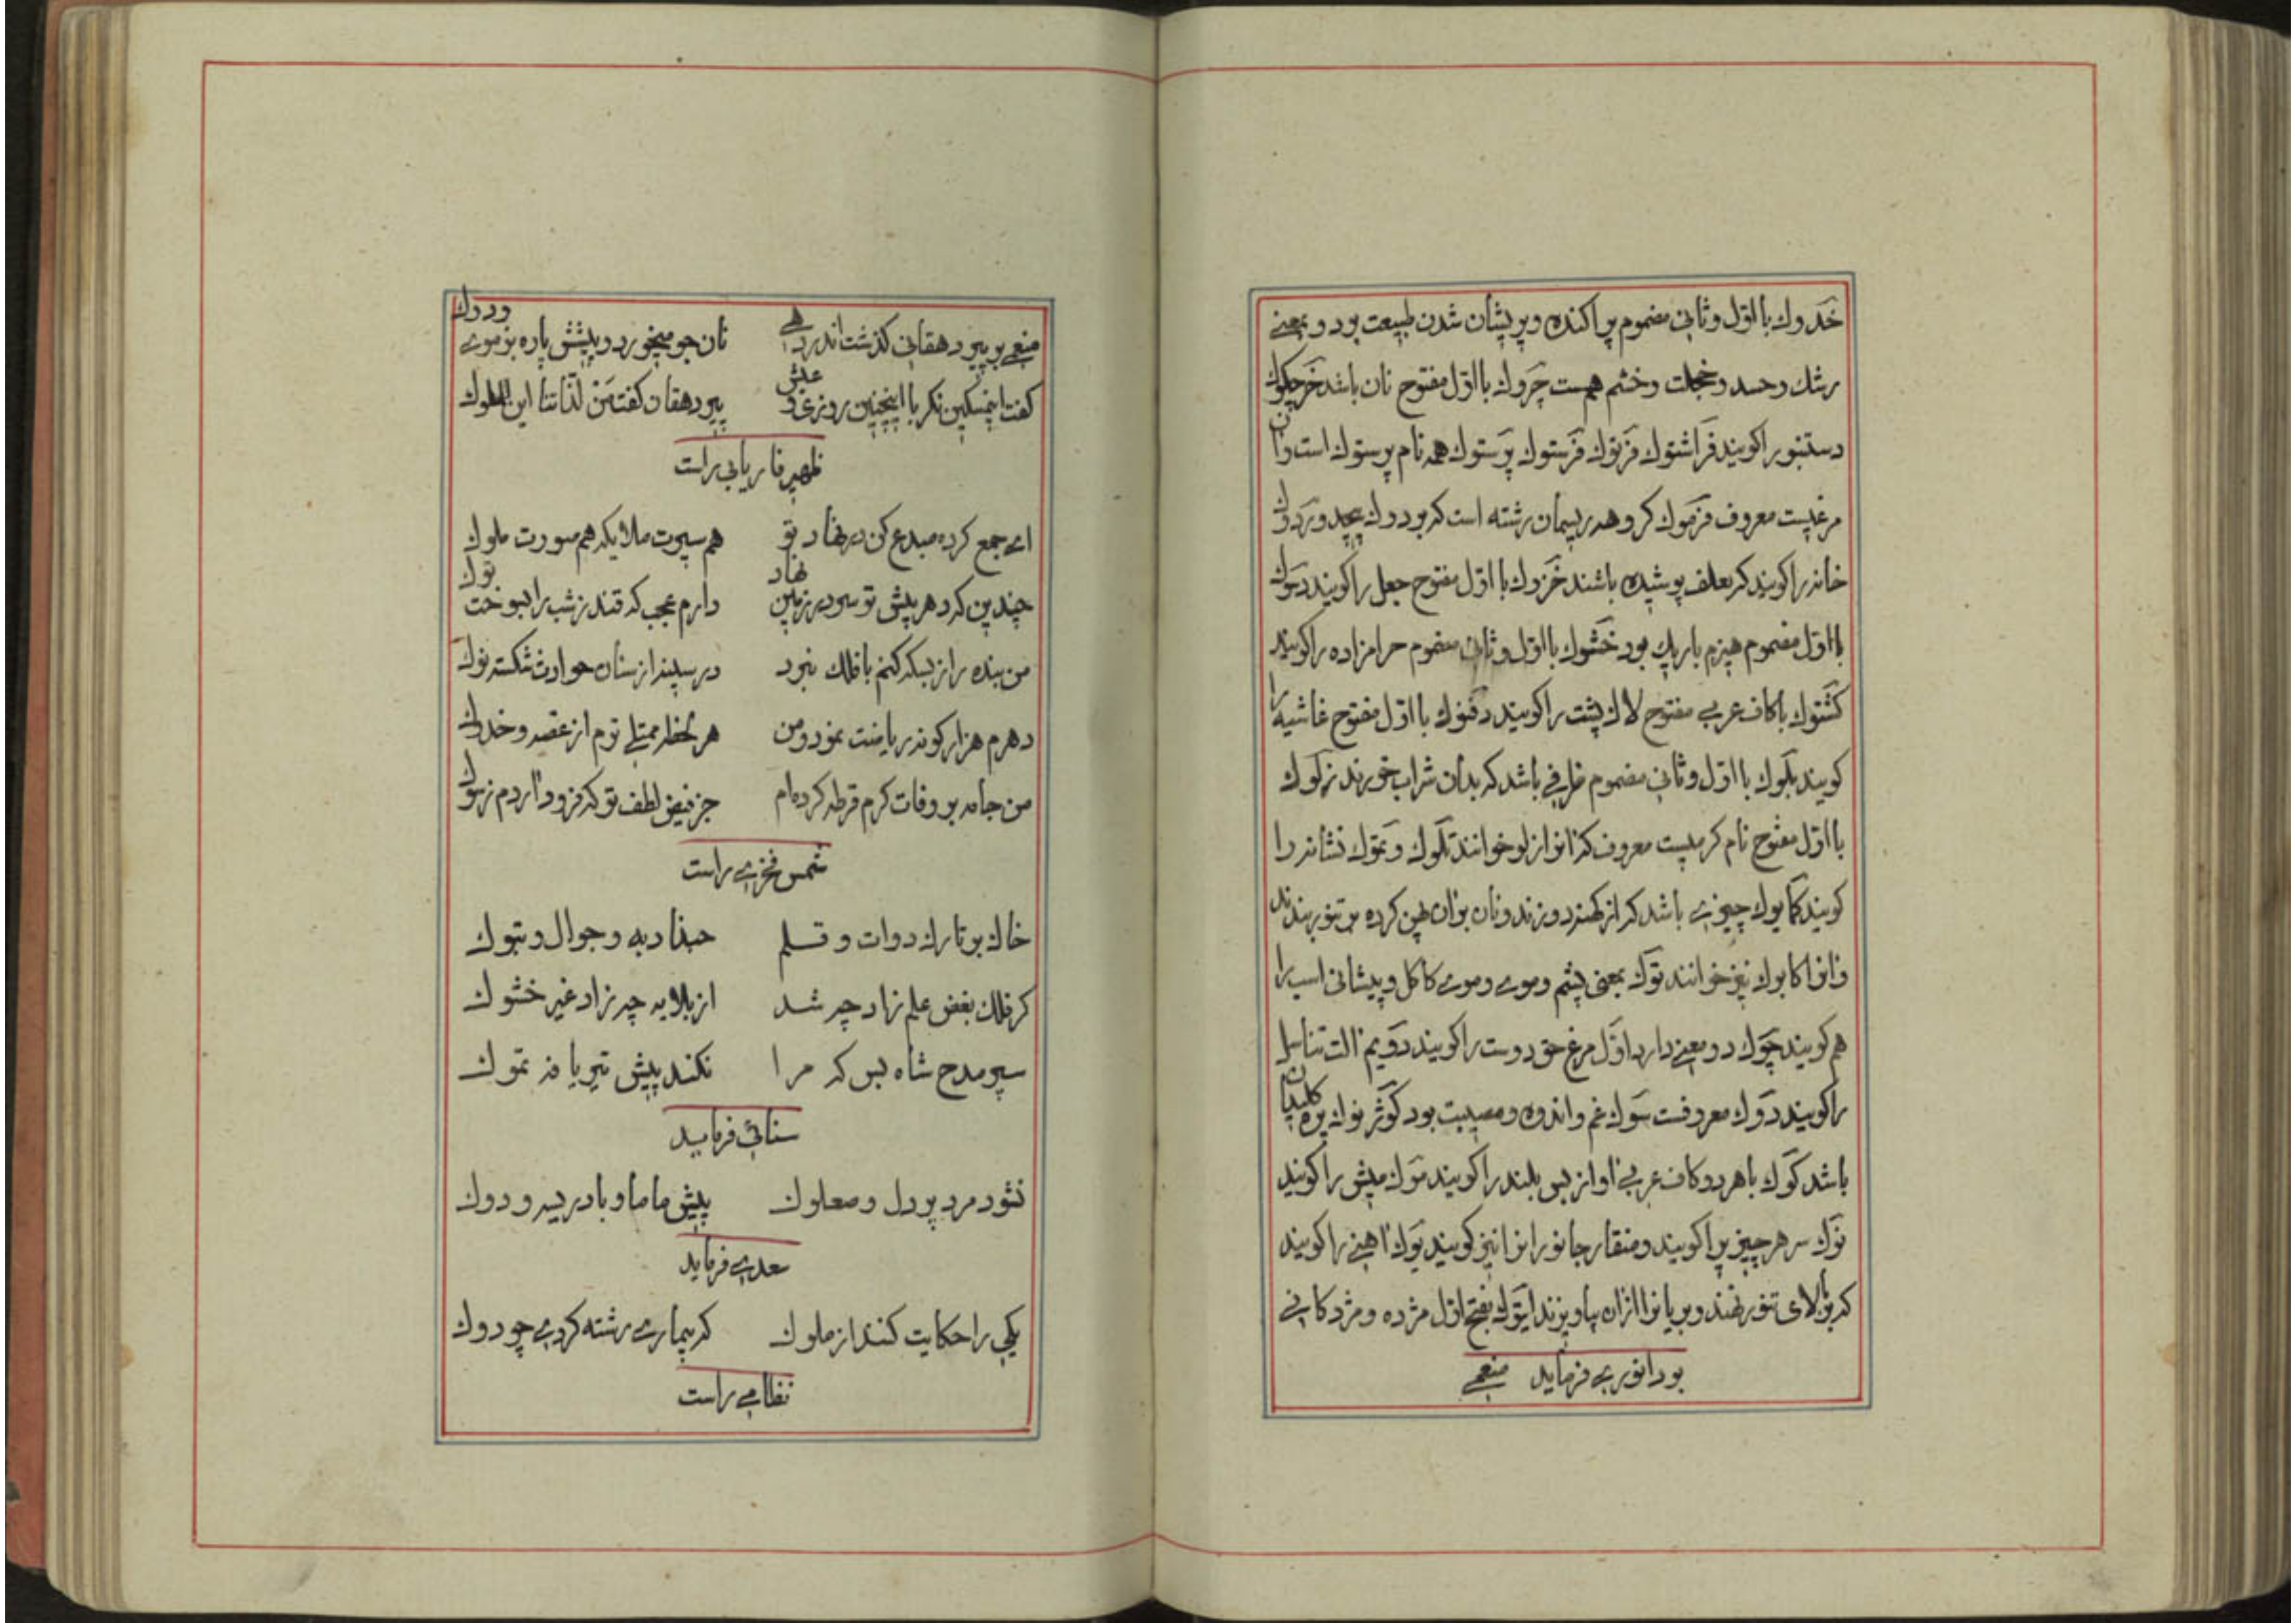 خَدوك با اوّل و ثانی مضموم پراکنده و پریشان شدن طبیعت بود و بمعنی
رشك و حسد و خجلت و خشم هم هست چَروك با اوّل مفتوح نان باشد خَرچکوك
دستنبو را کویند فَراشتوك فَرتوك فَرستوك پَرستوك همه نام پرستوك است وان
مرغیست معروف فرَموك کروهه ریسمان رشته است که بر دوك پیچد ورَدوك
خانه را کویند که بعلف پوشیده باشند خَزدوك با اوّل مفتوح جعل را کویند دَسوك
با اوّل مضموم هیزم باریك بود خَشوك با اوّل و ثانی مضموم حرامزاده را کویند
کَشتوك با کاف عربی مفتوح لاك پشت را کویند دَفنوك با اوّل مفتوح غاشیه را
کویند بلَوك با اوّل و ثانی مضموم ظرفی باشد که بدان شراب خورند زَکوك
با اوّل مفتوح نام کرمیست معروف که انرا زلو خوانند تَکوك و تَموك نشانه را
کویند کَابوك چیزی باشد که از کهنه دوزند و نان بران پهن کرده بر تنور بندند
وانرا کابوك نیز خوانند تَوك بمعنی پشم و موی و موی کاکل و پیشانی اسب را
هم کویند چَوك دو معنی دارد اوّل مرغ حق دوست را کویند دَویم الت تناسل
را کویند دَوك معروفست سَوك غم و اندوه و مصیبت بود کَوژ نوك پره کلیدان
باشد کَوك با هر دو کاف عربی اواز بس بلند را کویند مَوك میش را کویند
نَوك سر هر چیز را کویند و منقار جانور را نیز کویند یَوك اهنی را کویند
که بر بالای تنور نهند و بریانرا ازان بیاویزند ایَتوك بفتح اوّل مژده و مژدکانی
بود انوری فرماید منعمی
منعمی بر پیر دهقانی کذشت اندر دهی نان جو میخورد و پیشش پاره بز موی ودوك
کفت ایمسکین نکر با اینچنین روزی و عیش پیر دهقان کفت مَن لذّاتنا این الملوك
ظهیر فاریابی راست
ای جمع کرده مبدع کن در نهاد تو هم سیرت ملایکه هم سورت ملوك
چندین که دهر پیش تو سر در زمین نهاد دارم عجب که قندز شب را نسوخت توك
من بنده را ز بسکه کنم با فلك نبرد در سینه از سنان حوادث شکسته نوك
دهرم هزار کونه ریاضت نمود و من هر لحظه ممتلی ترم از غصه و خدوك
من جامه بر وفات کرم قرطه کرده‌ام جز فیض لطف تو که فزود اردم ز سوك
شمس فخری راست
خاك بر تارك دوات و قلم حبذا دبه و جوال و تبوك
کر فلك بغض علم زاد چه شد از بلایه چه زاد غیر خشوك
سپر مدح شاه بس که مرا نکند پیش تیر یافه تموك
سنائی فرماید
نشود مرد پردل و صعلوك پیش ماما و بادریسه و دوك
سعدی فرماید
یکی را حکایت کنند از ملوك که بیماری رشته کردی چو دوك
نظامی راست